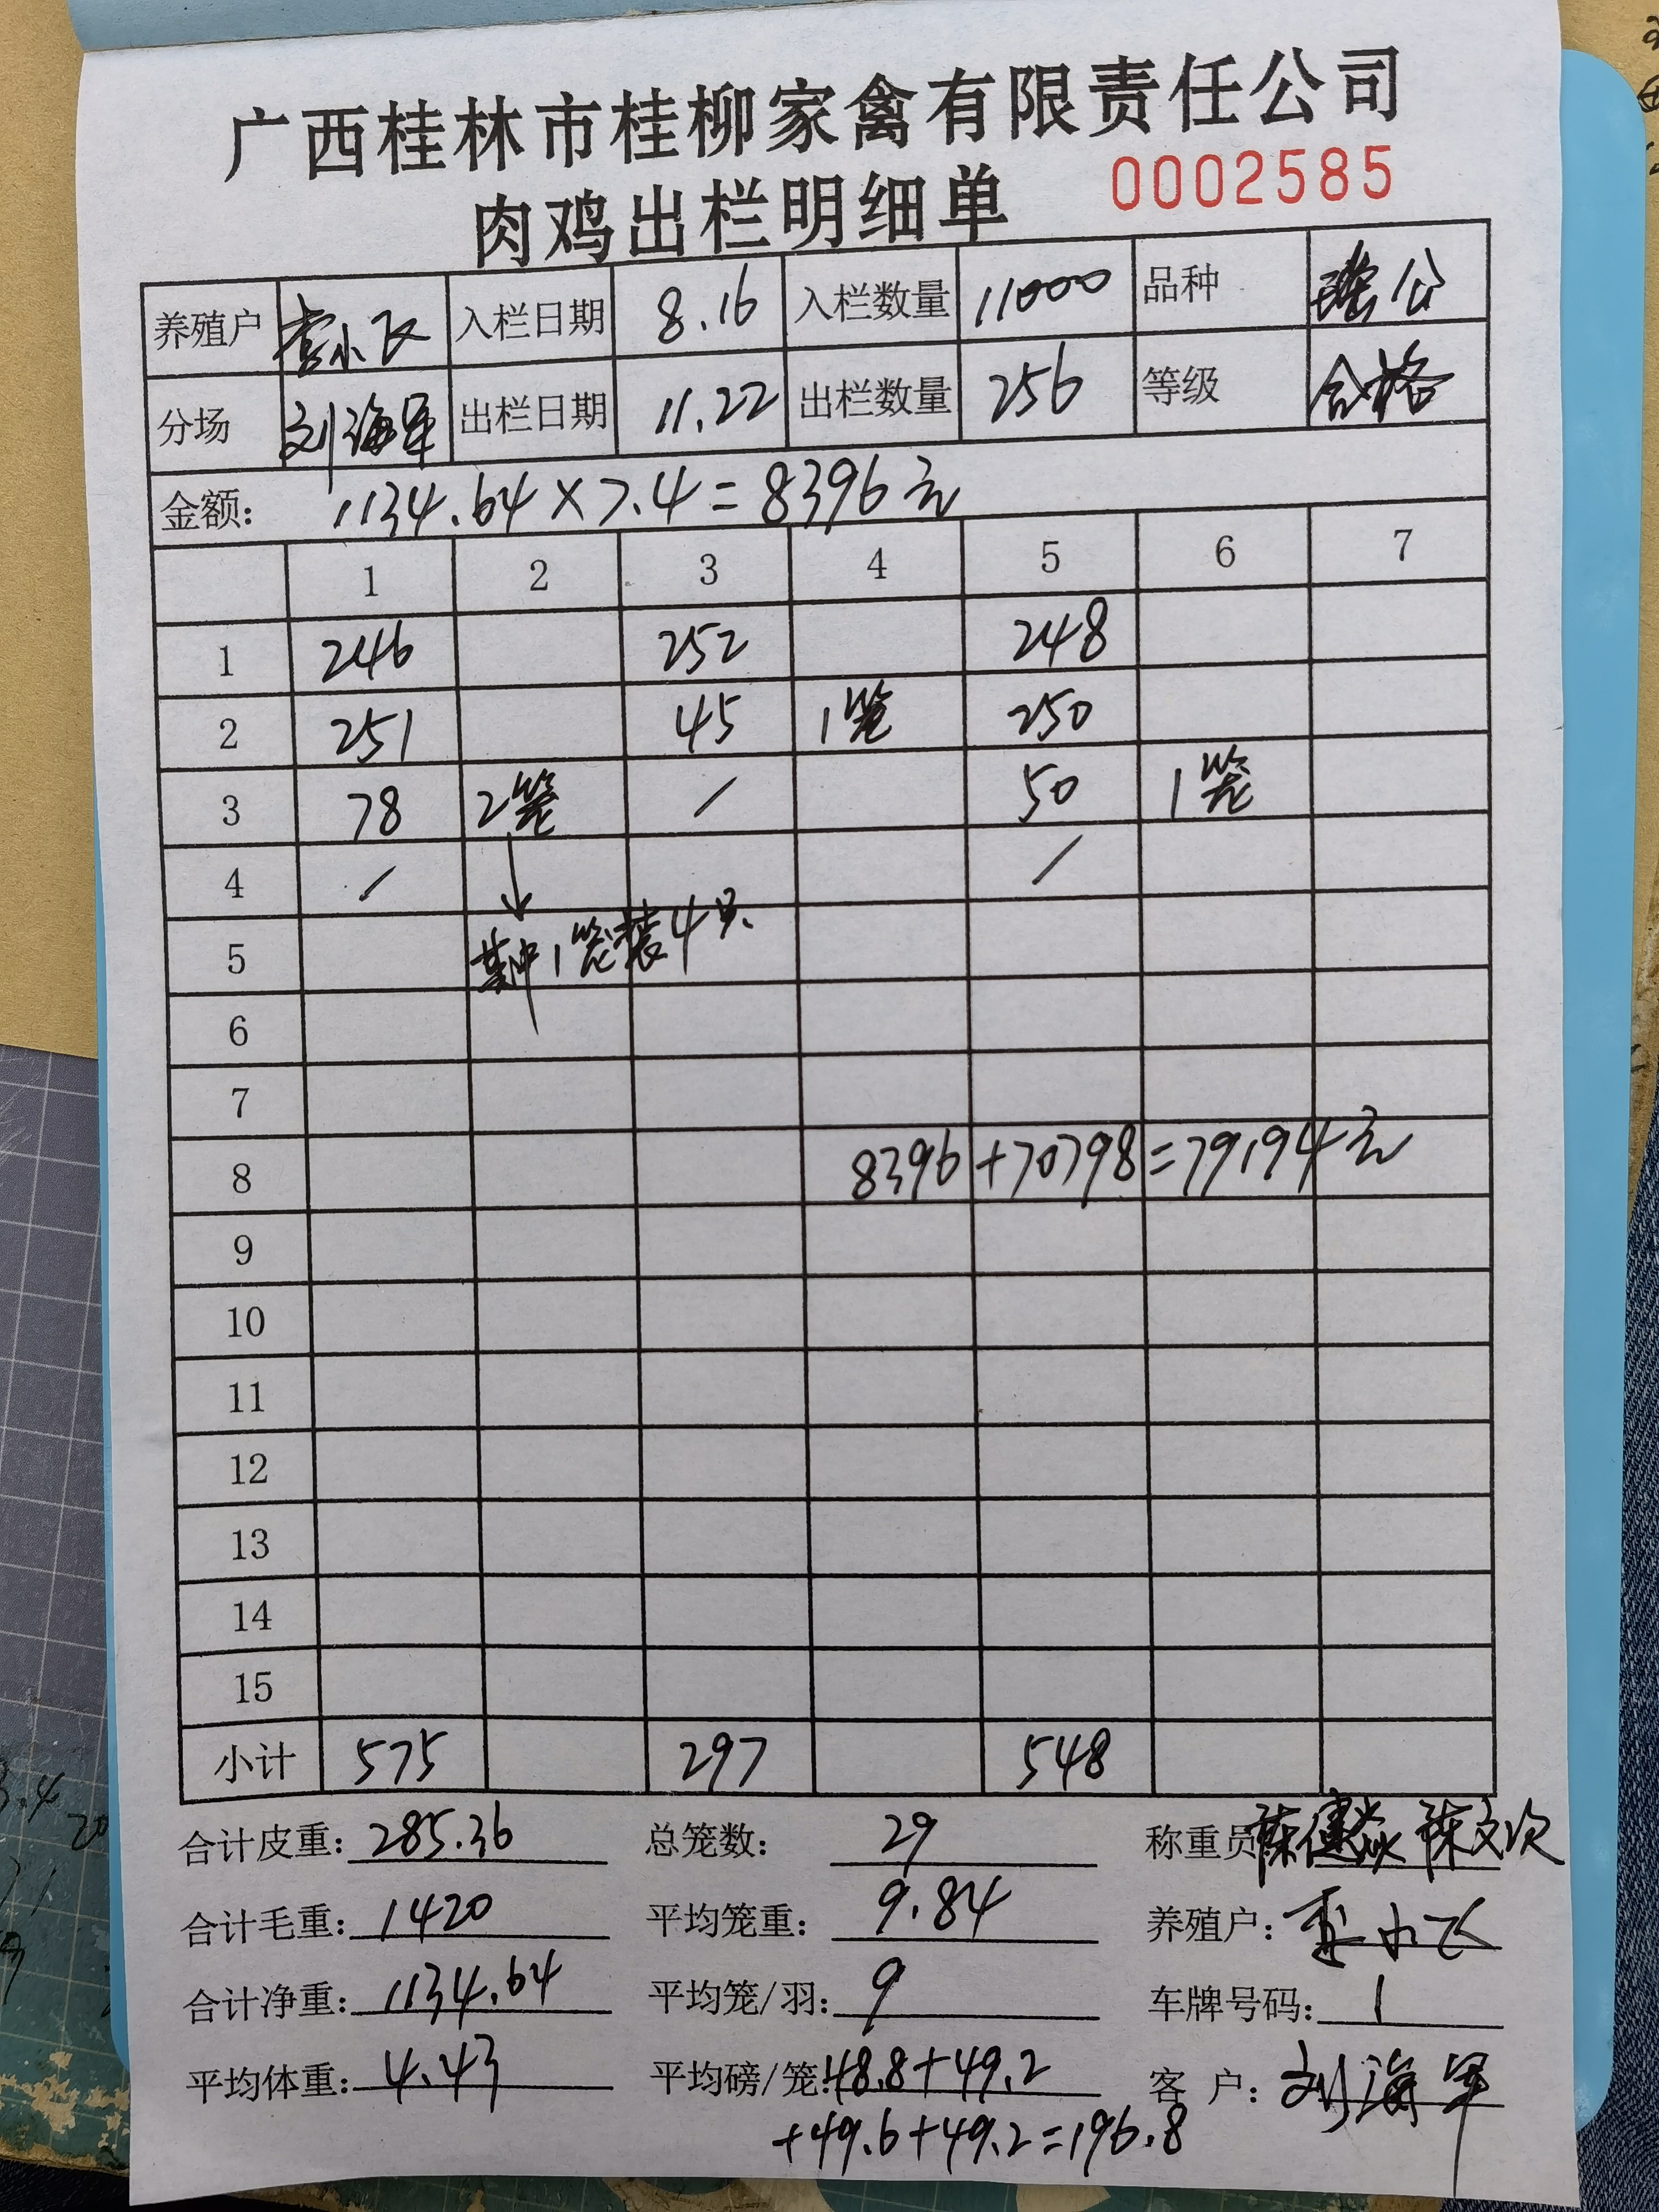 广西桂林市桂柳家禽有限责任公司
肉鸡出栏明细单 0002585
养殖户 李小飞 入栏日期 8.16 入栏数量 11000 品种 瑶公
分场 刘海军 出栏日期 11.22 出栏数量 256 等级 合格
金额: 1134.64×7.4=8396元
1 2 3 4 5 6 7
1 246 252 248
2 251 45 1笼 250
3 78 2笼 / 50 1笼
4 / /
5 其中1笼装4只
6
7
8 8396+70798=79194元
9
10
11
12
13
14
15
小计 575 297 548
合计皮重: 285.36 总笼数: 29 称重员
合计毛重: 1420 平均笼重: 9.84 养殖户: 李小飞
合计净重: 1134.64 平均笼/羽: 9 车牌号码: 1
平均体重: 4.43 平均磅/笼: 48.8+49.2 客 户: 刘海军
+49.6+49.2=196.8